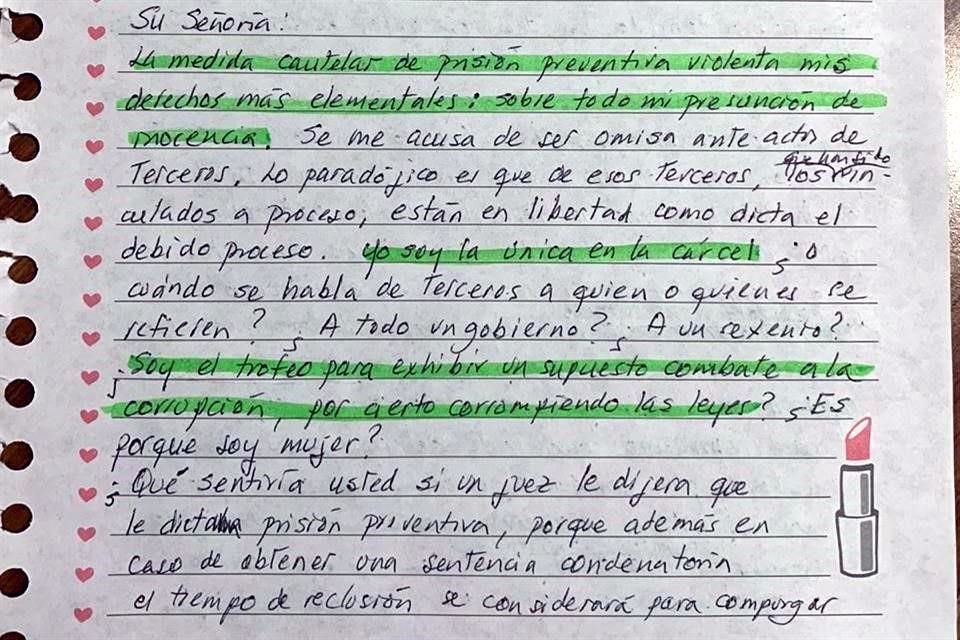 Su Señoría:
La medida cautelar de prisión preventiva violenta mis
derechos más elementales: sobre todo mi presunción de
inocencia. Se me acusa de ser omisa ante actos de
Terceros. Lo paradójico es que de esos Terceros, que han sido los vin-
culados a proceso, están en libertad como dicta el
debido proceso. Yo soy la única en la cárcel ¿o
cuándo se habla de Terceros a quien o quienes se
refieren? ¿A todo un gobierno? ¿A un sexenio?
¿Soy el trofeo para exhibir un supuesto combate a la
corrupción, por cierto corrompiendo las leyes? ¿Es
porque soy mujer?
¿Qué sentiría usted si un juez le dijera que
le dictaba prisión preventiva, porque además en
caso de obtener una sentencia condenatoria
el tiempo de reclusión se considerará para compurgar